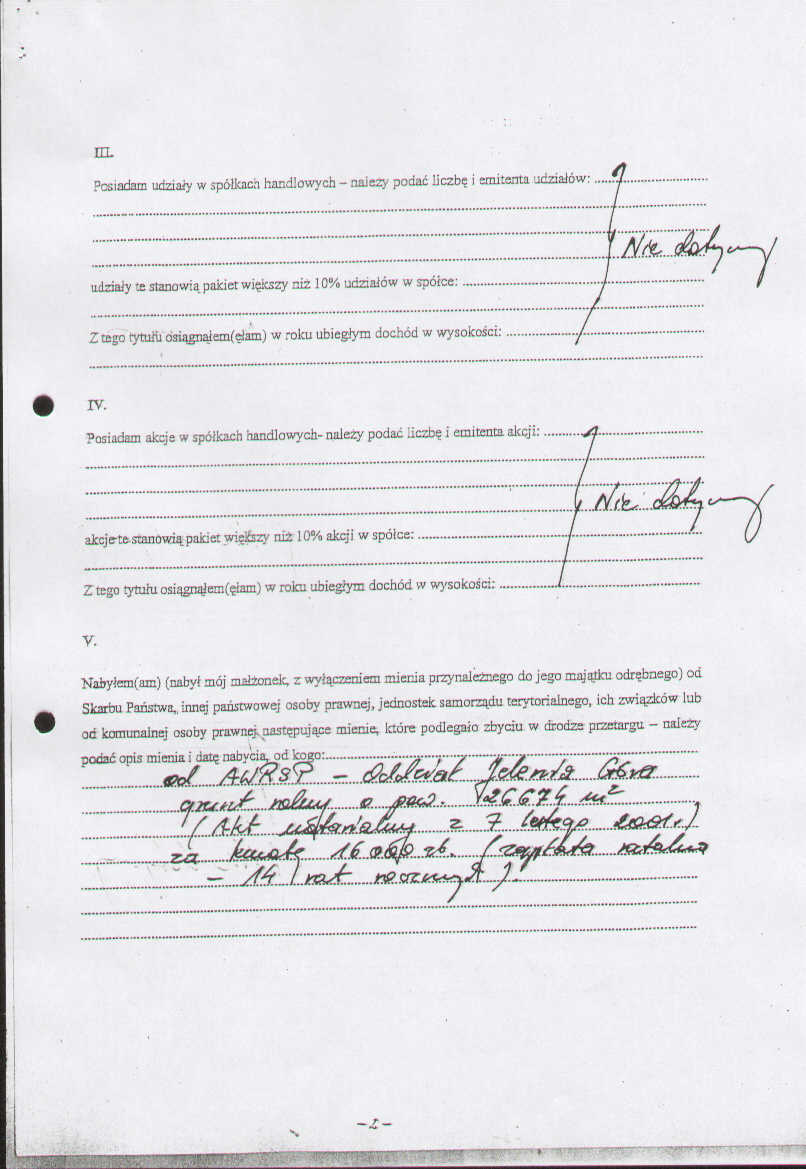 III.
Posiadam udziały w spółkach handlowych – należy podać liczbę i emitenta udziałów: ........................
Nie dotyczy
udziały te stanowią pakiet większy niż 10% udziałów w spółce: ........................
Z tego tytułu osiągnąłem(ęłam) w roku ubiegłym dochód w wysokości: ........................
IV.
Posiadam akcje w spółkach handlowych- należy podać liczbę i emitenta akcji: ........................
Nie dotyczy
akcje te stanowią pakiet większy niż 10% akcji w spółce: ........................
Z tego tytułu osiągnąłem(ęłam) w roku ubiegłym dochód w wysokości: ........................
V.
Nabyłem(am) (nabył mój małżonek, z wyłączeniem mienia przynależnego do jego majątku odrębnego) od
Skarbu Państwa, innej państwowej osoby prawnej, jednostek samorządu terytorialnego, ich związków lub
od komunalnej osoby prawnej następujące mienie, które podlegało zbyciu w drodze przetargu – należy
podać opis mienia i datę nabycia, od kogo: ........................
od AWRSP – Oddział Jelenia Góra
grunt rolny o pow. 26674 m²
(Akt notarialny z 7 lutego 2001 r.)
za kwotę 16 000 zł. (zapłata ratalna
– 14 rat rocznych).
-2-